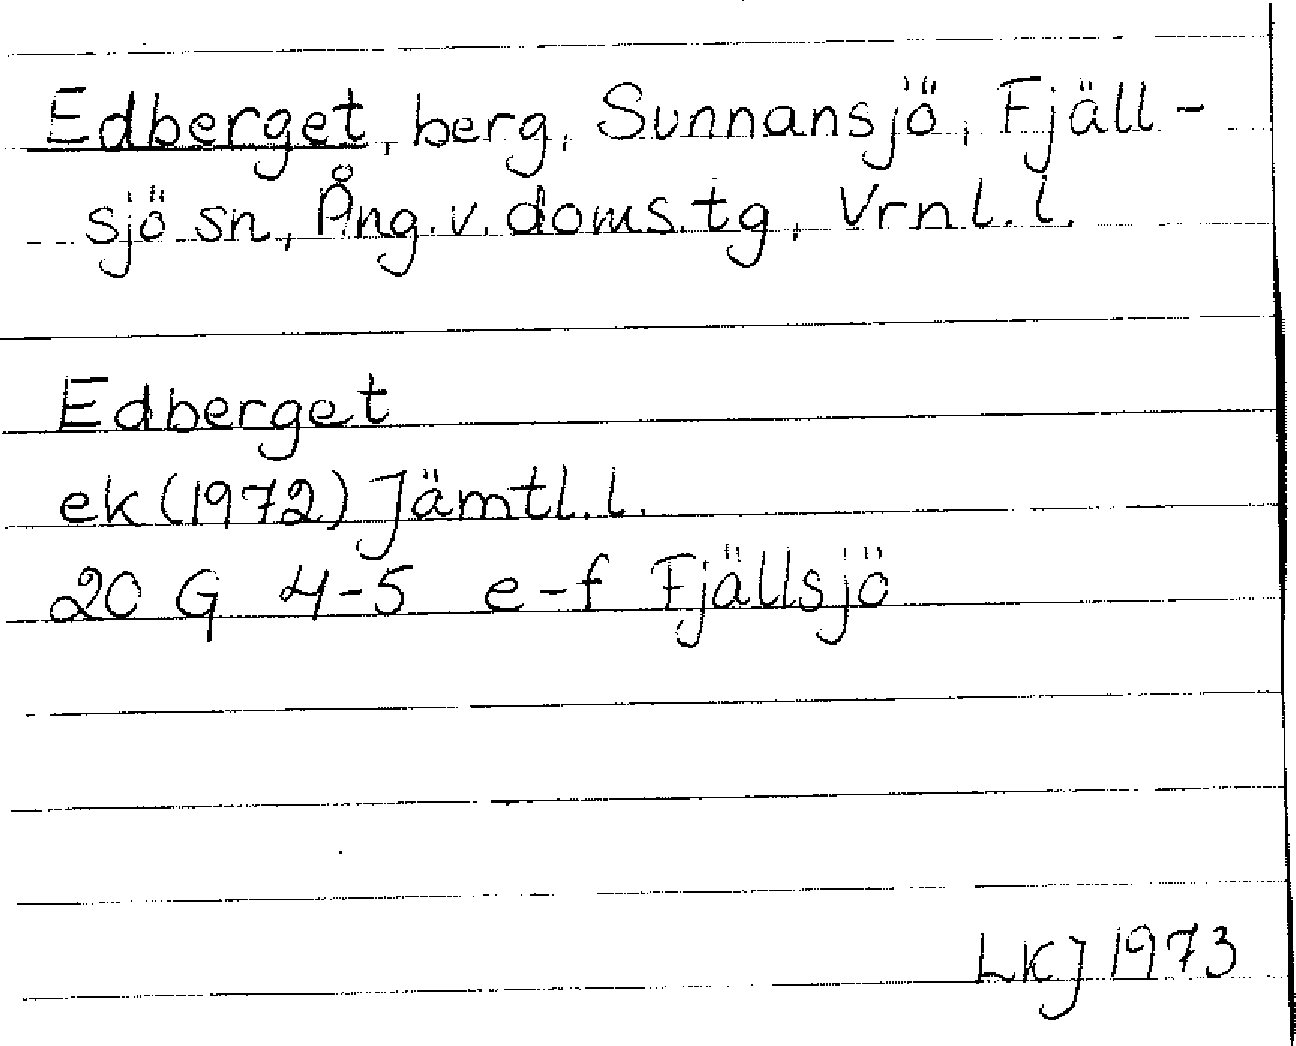 Edberget, berg, Sunnansjö, Fjäll-
sjö sn, Ång. v. doms. tg, Vrnl. l.
Edberget
ek (1972) Jämtl. l.
20 G 4-5 e-f Fjällsjö
LKJ 1973